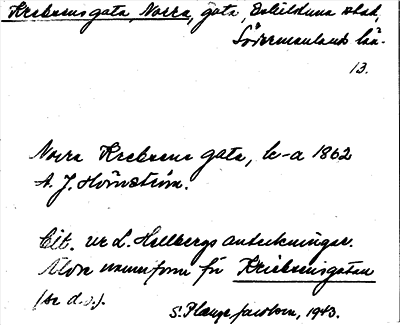 Krebsens gata, Norra, gata, Eskilstuna stad,
Södermanlands län.
13.
Norra Krebsens gata, k-a 1862
A. J. Hörnström.
Cit. ur L. Hellbergs anteckningar.
Äldre namnform för Kriebsensgatan
(se d.o.).
S. Plange Jacobson, 1943.